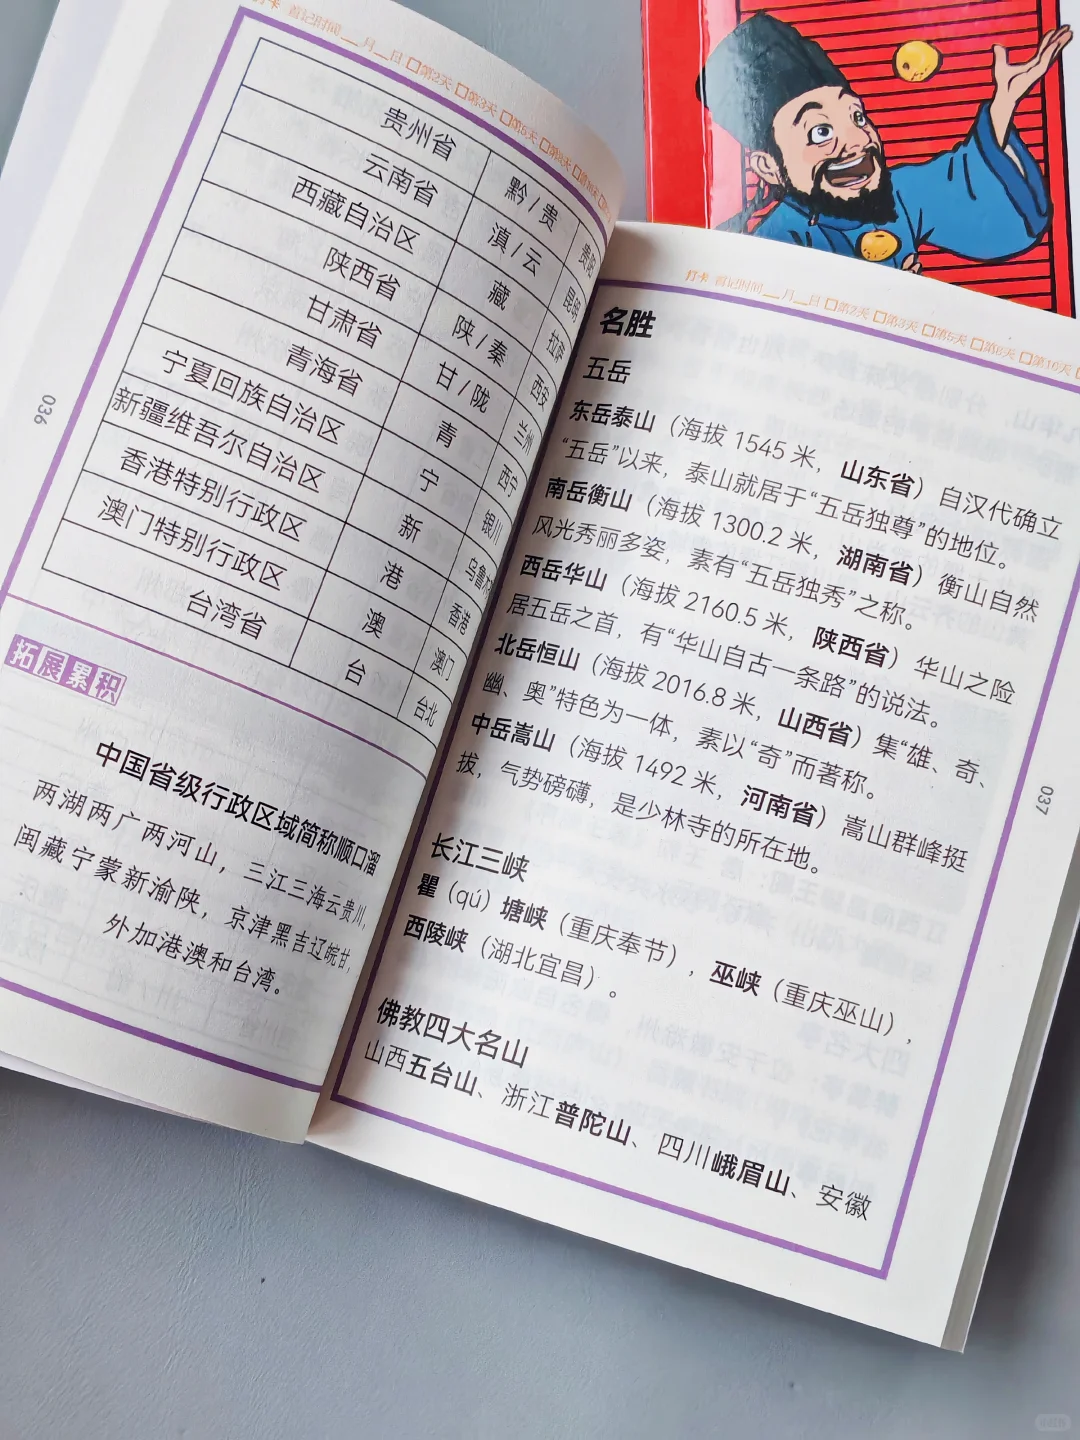 打卡 首记时间__月__日 □第2天 □第3天 □第5天
贵州省 黔/贵 贵阳
云南省 滇/云 昆明
西藏自治区 藏 拉萨
陕西省 陕/秦 西安
甘肃省 甘/陇 兰州
青海省 青 西宁
宁夏回族自治区 宁 银川
新疆维吾尔自治区 新 乌鲁木
香港特别行政区 港 香港
澳门特别行政区 澳 澳门
台湾省 台 台北
拓展累积
中国省级行政区域简称顺口溜
两湖两广两河山，三江三海云贵川，
闽藏宁蒙新渝陕，京津黑吉辽皖甘，
外加港澳和台湾。
036
打卡 首记时间__月__日 □第2天 □第3天 □第5天 □第8天 □第10天
名胜
五岳
东岳泰山（海拔 1545 米，山东省）自汉代确立
“五岳”以来，泰山就居于“五岳独尊”的地位。
南岳衡山（海拔 1300.2 米，湖南省）衡山自然
风光秀丽多姿，素有“五岳独秀”之称。
西岳华山（海拔 2160.5 米，陕西省）华山之险
居五岳之首，有“华山自古一条路”的说法。
北岳恒山（海拔 2016.8 米，山西省）集“雄、奇、
幽、奥”特色为一体，素以“奇”而著称。
中岳嵩山（海拔 1492 米，河南省）嵩山群峰挺
拔，气势磅礴，是少林寺的所在地。
长江三峡
瞿（qú）塘峡（重庆奉节），巫峡（重庆巫山），
西陵峡（湖北宜昌）。
佛教四大名山
山西五台山、浙江普陀山、四川峨眉山、安徽
037